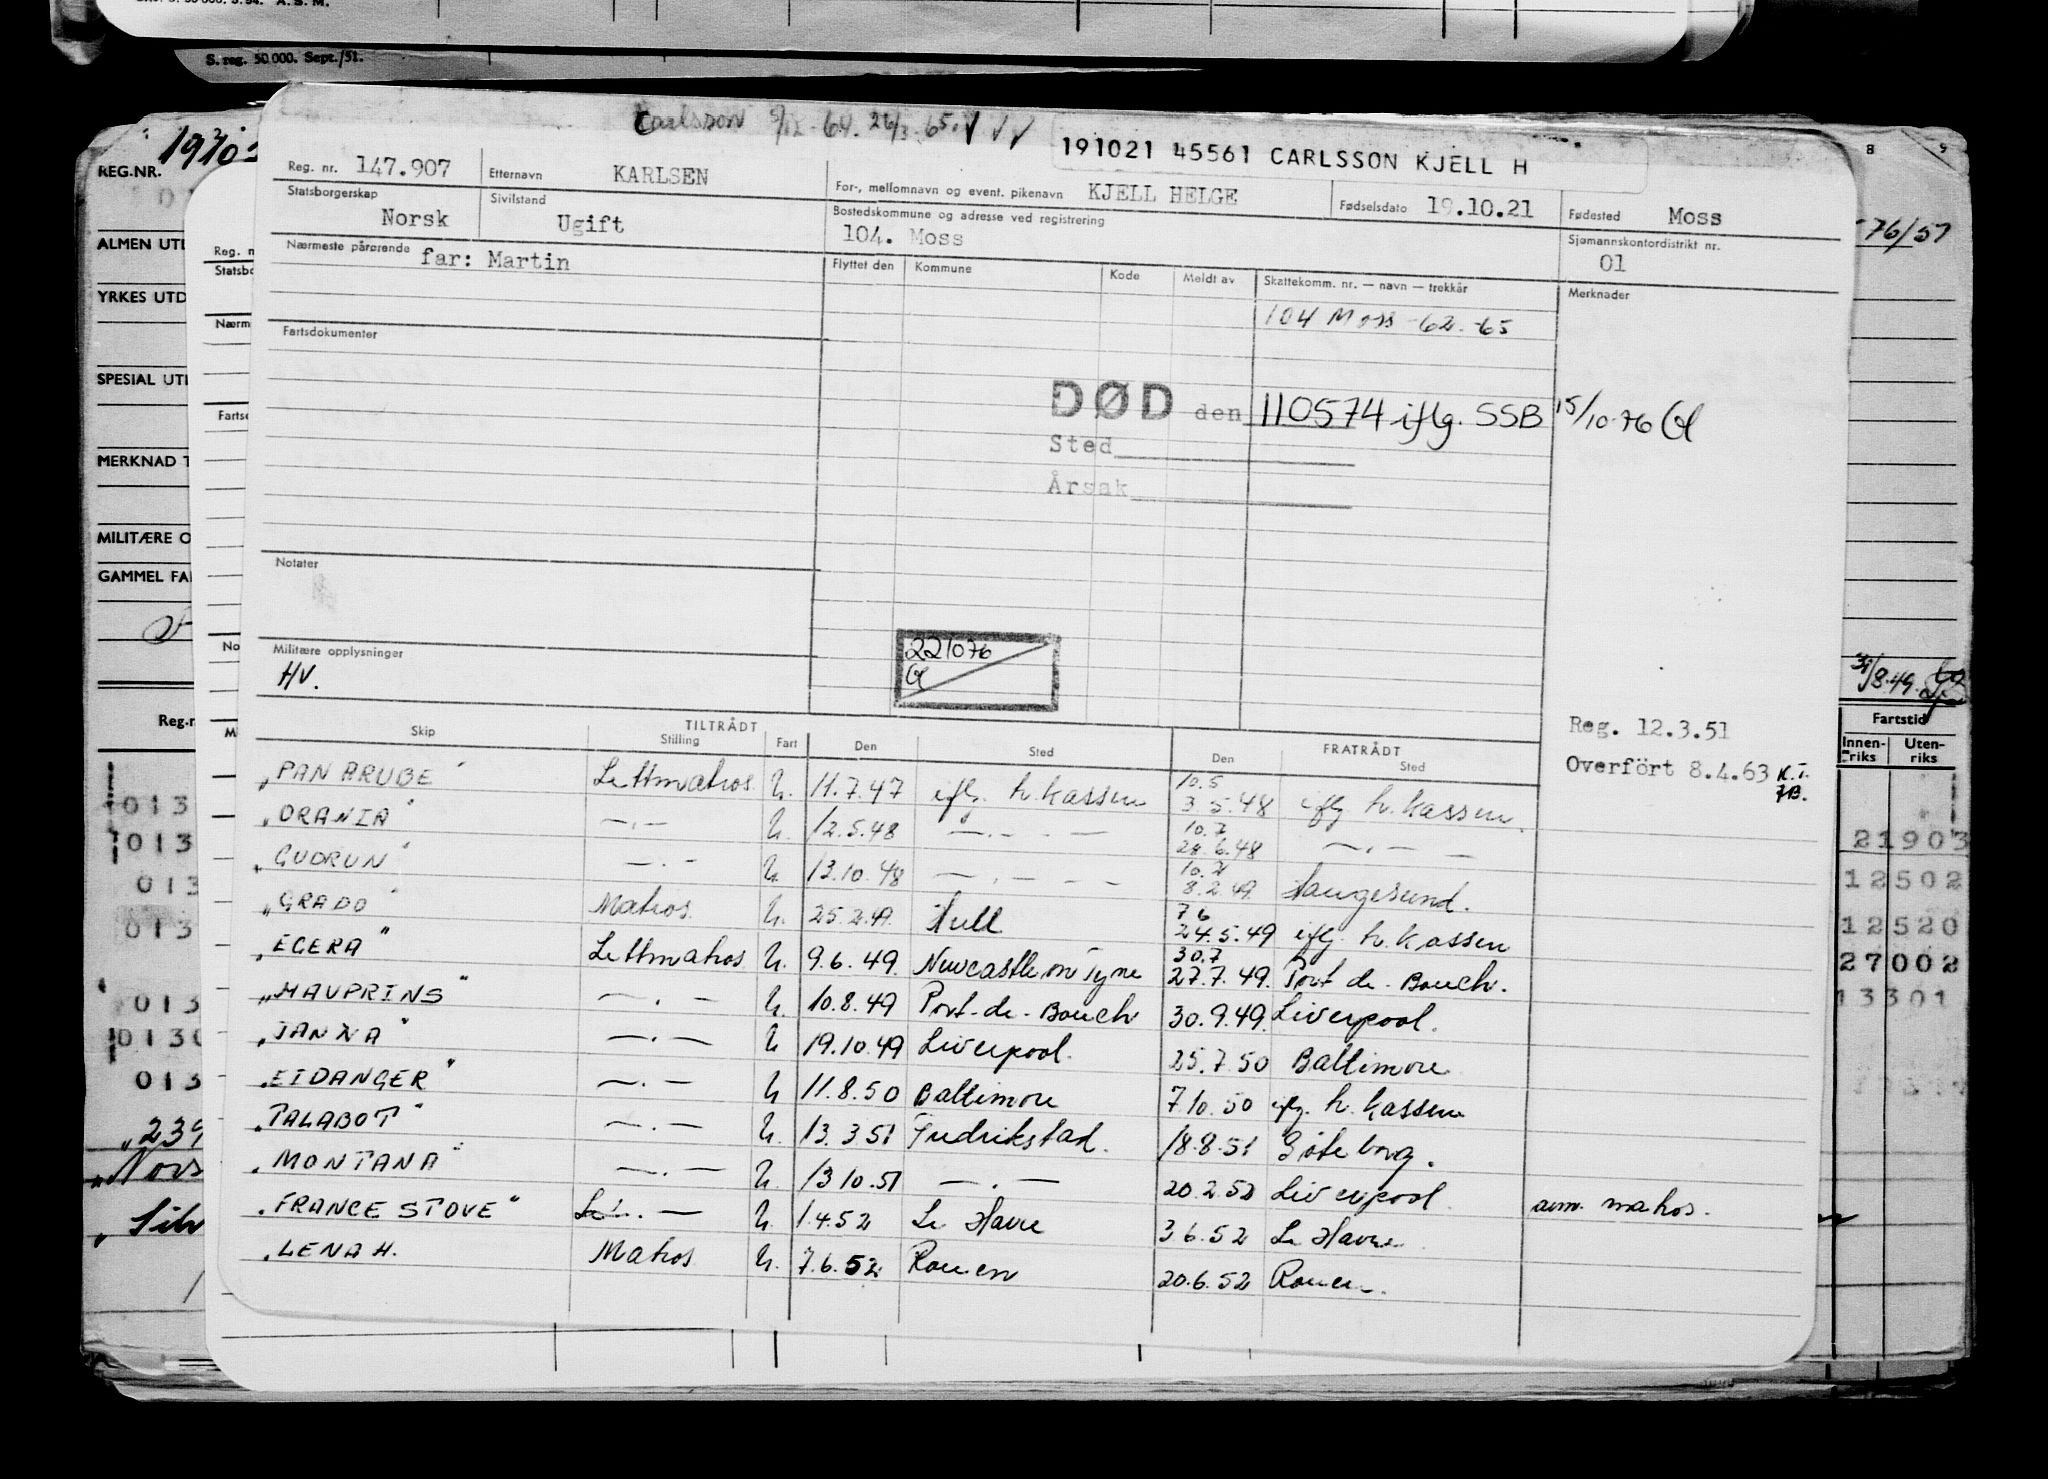 S. reg. 50 000. Sept./51.
Carlsson
191021 45561 CARLSSON KJELL H
Reg. nr. 147.907 Etternavn KARLSEN For-, mellomnavn og event. pikenavn KJELL HELGE Fødselsdato 19.10.21 Fødested Moss
Statsborgerskap Norsk Sivilstand Ugift Bostedskommune og adresse ved registrering 104. Moss Sjømannskontordistrikt nr. 01
Nærmeste pårørende far: Martin Flyttet den Kommune Kode Meldt av Skattekomm. nr. — navn — trekkår Merknader
104 Moss -62 -65
Fartsdokumenter
DØD den 110574 iflg. SSB 15/10-76
Sted
Årsak
Notater
221076
Militære opplysninger
HV.
Reg. 12.3.51
Overført 8.4.63
TILTRÅDT FRATRÅDT
Skip Stilling Fart Den Sted Den Sted
"PAN BRUBE" Lettmatros U. 11.7.47 iflg. h. kassen 10.5 3.5.48 iflg. h. kassen.
"ORANIA" —.— U. 12.5.48 —.—.— 10.7 28.6.48 —.—.—
"GUDRUN" —.— U. 13.10.48 —.—.— 8.2.49 Haugesund.
"GRADO" Matros. U. 25.2.49 Hull 7.6 24.5.49 iflg. h. kassen
"EGERA" Lettmatros U. 9.6.49 Newcastle on Tyne 30.7 27.7.49. Port de-Bouch.
"HAVPRINS" —.— U. 10.8.49 Port-de-Bouch 30.9.49. Liverpool.
"JANNA" —.— U 19.10.49 Liverpool. 25.7.50 Baltimore
"EIDANGER" —.— U 11.8.50 Baltimore 7.10.50 iflg. h. kassen
"TALABOT" —.— U. 13.3.51 Fredrikstad. 18.8.51 Göteborg.
"MONTANA" —.— U. 13.10.51 —.— 20.2.52 Liverpool. avm. matros.
"FRANCE STOVE" —.— U. 1.4.52 Le Havre 3.6.52 Le Havre.
"LENA H. Matros U. 7.6.52 Rouen 20.6.52 Rouen.
REG.NR.
ALMEN UTD
YRKES UTD
SPESIAL UT
MERKNAD T
MILITÆRE O
GAMMEL FA
8 9
76/51
Fartstid
Innenriks Utenriks
21903
12502
12520
27002
13301